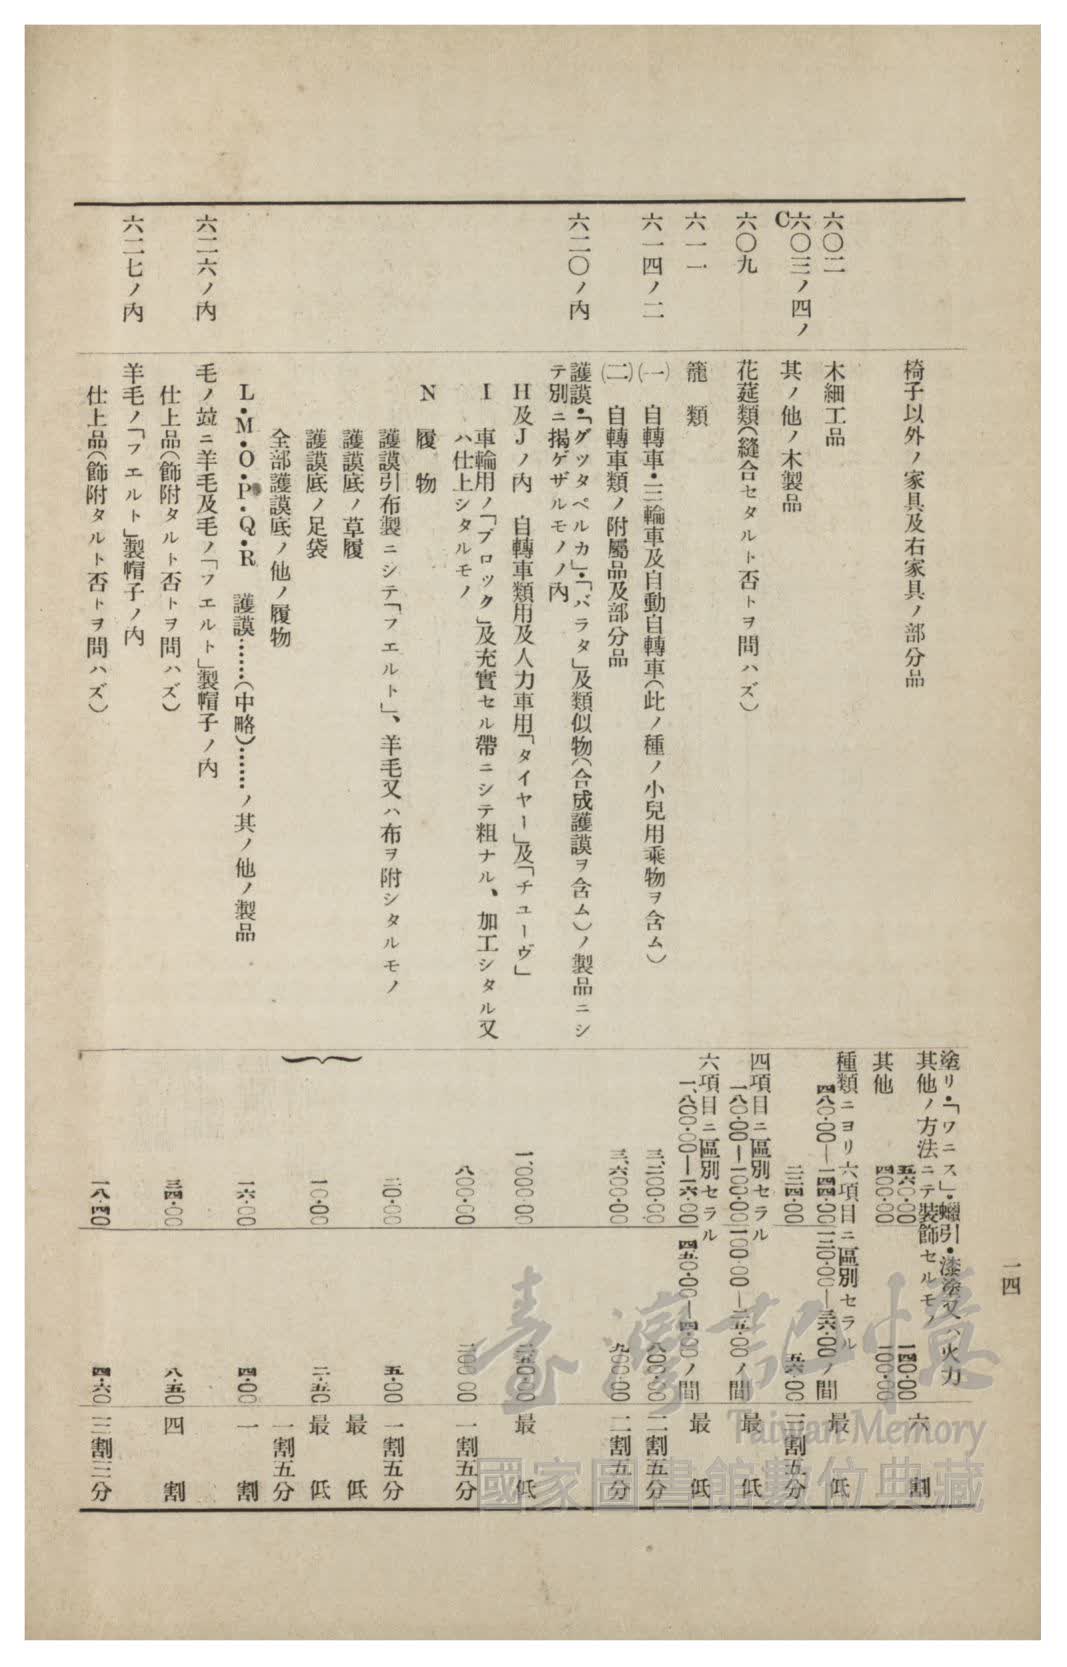 一四
椅子以外ノ家具及右家具ノ部分品
塗リ・「ワニス」・蠟引・漆塗又ハ火力
其他ノ方法ニテ装飾セルモノ
五六〇・〇〇 一四〇・〇〇 六割
其他 四〇〇・〇〇 一〇〇・〇〇
六〇二 木細工品 種類ニヨリ六項目ニ區別セラル
四八〇・〇〇―一四四・〇〇 一二〇・〇〇―三六・〇〇ノ間 最低
六〇三ノ四ノC 其ノ他ノ木製品 二二四・〇〇 五六・〇〇 三割五分
六〇九 花莚類(縫合セタルト否トヲ問ハズ) 四項目ニ區別セラル
一八〇・〇〇―一〇〇・〇〇 一〇〇・〇〇―二五・〇〇ノ間 最低
六一一 籠類 六項目ニ區別セラル
一、八〇〇・〇〇―一六・〇〇 四五〇・〇〇―四・〇〇ノ間 最低
六一四ノ二 (一) 自轉車・三輪車及自動自轉車(此ノ種ノ小兒用乘物ヲ含ム) 三、二〇〇・〇〇 八〇〇・〇〇 二割五分
(二) 自轉車類ノ附屬品及部分品 三、六〇〇・〇〇 九〇〇・〇〇 二割五分
六二〇ノ内 護謨・「グッタペルカ」・「バラタ」及類似物(合成護謨ヲ含ム)ノ製品ニシ
テ別ニ揭ゲザルモノノ内
H及Jノ内 自轉車類用及人力車用「タイヤー」及「チューヴ」 一、〇〇〇・〇〇 二五〇・〇〇 最低
I 車輪用ノ「ブロック」及充實セル帶ニシテ粗ナル、加工シタル又
ハ仕上シタルモノ 八〇〇・〇〇 二〇〇・〇〇 一割五分
N 履物
護謨引布製ニシテ「フエルト」、羊毛又ハ布ヲ附シタルモノ 二〇・〇〇 五・〇〇 一割五分
護謨底ノ草履 最低
護謨底ノ足袋 一〇・〇〇 二・五〇 最低
全部護謨底ノ他ノ履物 一割五分
L・M・O・P・Q・R 護謨……(中略)……ノ其ノ他ノ製品 一六・〇〇 四・〇〇 一割
六二六ノ内 毛ノ竝ニ羊毛及毛ノ「フエルト」製帽子ノ内
仕上品(飾附タルト否トヲ問ハズ) 三四・〇〇 八・五〇 四割
六二七ノ内 羊毛ノ「フエルト」製帽子ノ内
仕上品(飾附タルト否トヲ問ハズ) 一八・四〇 四・六〇 三割三分
臺灣記憶
Taiwan Memory
國家圖書館數位典藏